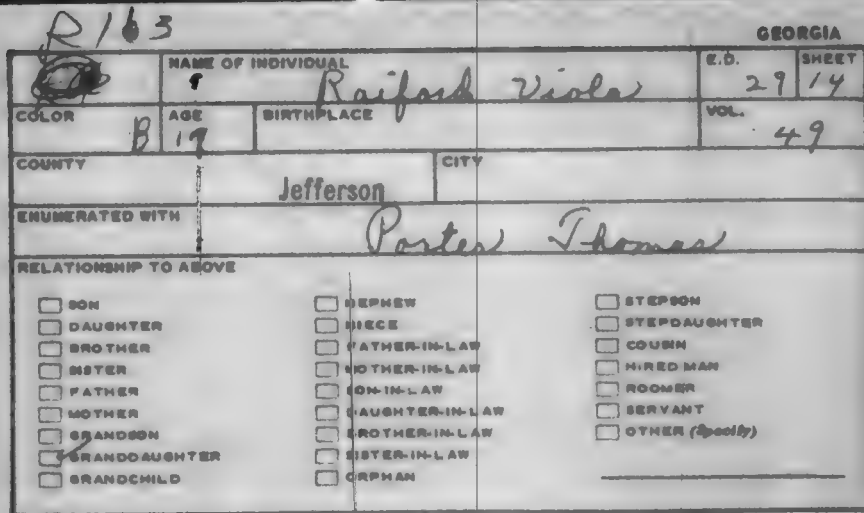 R163
GEORGIA
NAME OF INDIVIDUAL Raiford Viola
E.D. 29
SHEET 14
COLOR B
AGE 19
BIRTHPLACE
VOL. 49
COUNTY Jefferson
CITY
ENUMERATED WITH Porter Thomas
RELATIONSHIP TO ABOVE
SON
DAUGHTER
BROTHER
SISTER
FATHER
MOTHER
GRANDSON
GRANDDAUGHTER
GRANDCHILD
NEPHEW
NIECE
FATHER-IN-LAW
MOTHER-IN-LAW
SON-IN-LAW
DAUGHTER-IN-LAW
BROTHER-IN-LAW
SISTER-IN-LAW
ORPHAN
STEPSON
STEPDAUGHTER
COUSIN
HIRED MAN
ROOMER
SERVANT
OTHER (Specify)